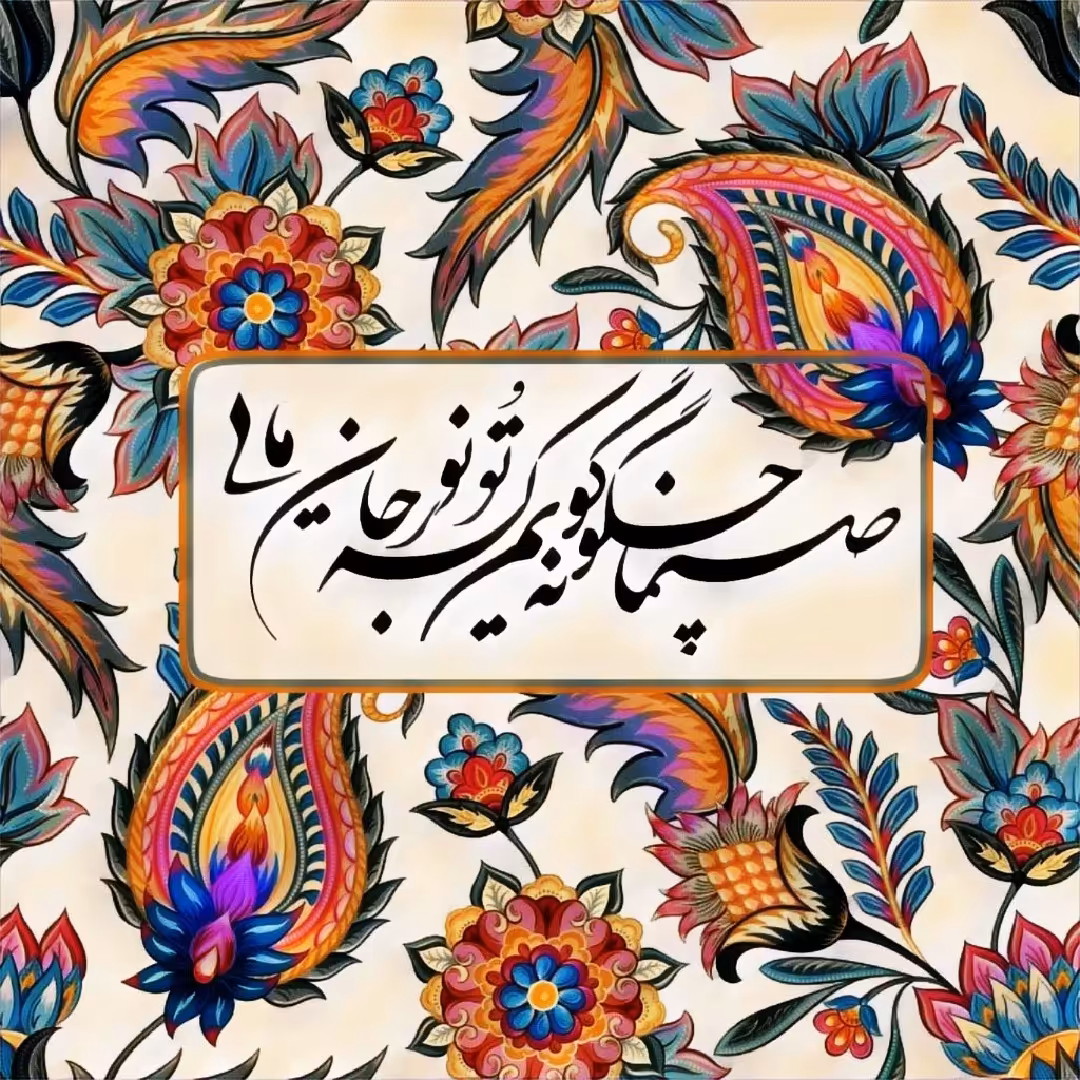 صنما چگونه گویم که تو نور جان مایی